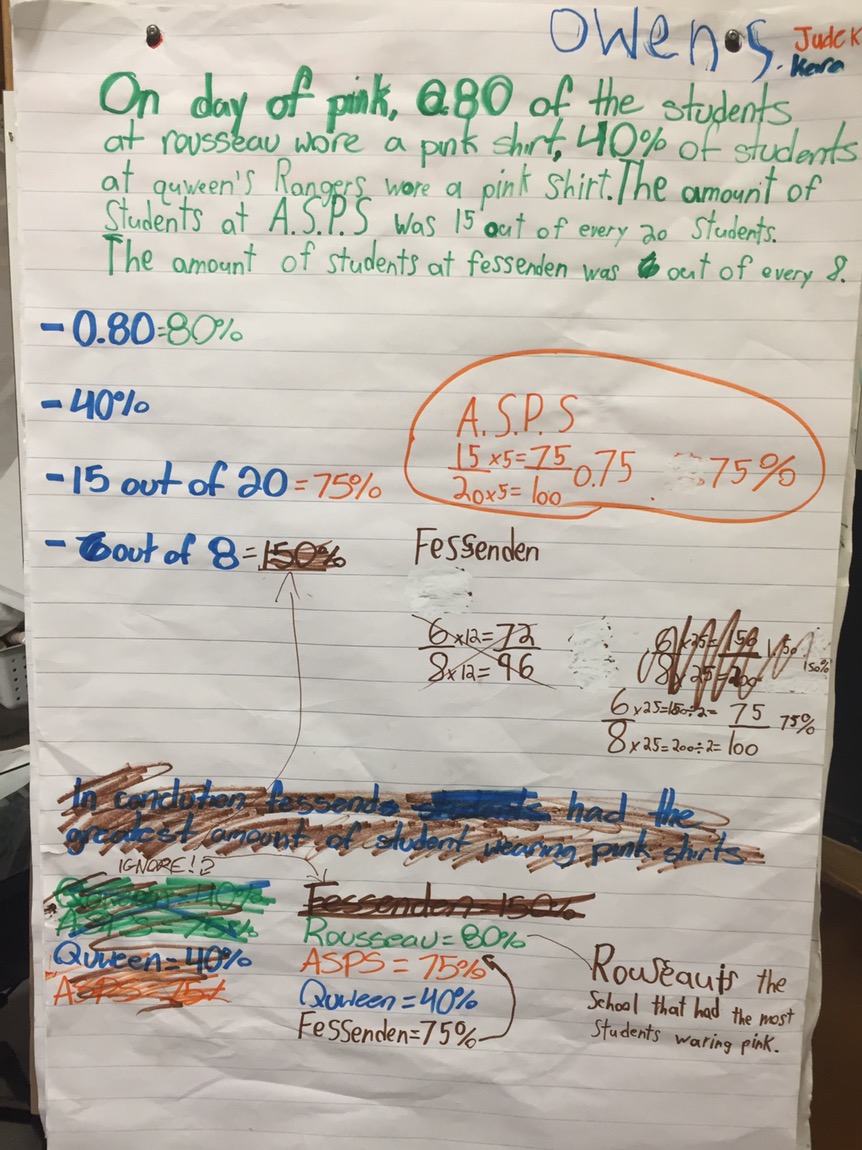 Owen S.
Jude K
Kara
On day of pink, 0.80 of the students
at rousseau wore a pink shirt, 40% of students
at quween's Rangers wore a pink shirt. The amount of
Students at A.S.P.S was 15 out of every 20 Students.
The amount of students at fessenden was 6 out of every 8.
- 0.80=80%
- 40%
- 15 out of 20 = 75%
- 6 out of 8 = 150%
A.S.P.S
15 x5= 75 0.75 75%
20x5= 100
Fessenden
6 x12= 72
8x12= 96
6 x25= 150 1.50 150%
8 x25=200
6 x25=150÷2= 75 75%
8 x25=200÷2= 100
In conclution fessenden students had the
greatest amount of student wearing pink shirts
IGNORE!?
Quween = 40%
ASPS = 75%
Quween = 40%
ASPS =
Fessenden = 150%
Rousseau = 80%
ASPS = 75%
Quween = 40%
Fessenden=75%
Rouseau is the
School that had the most
Students waring pink.